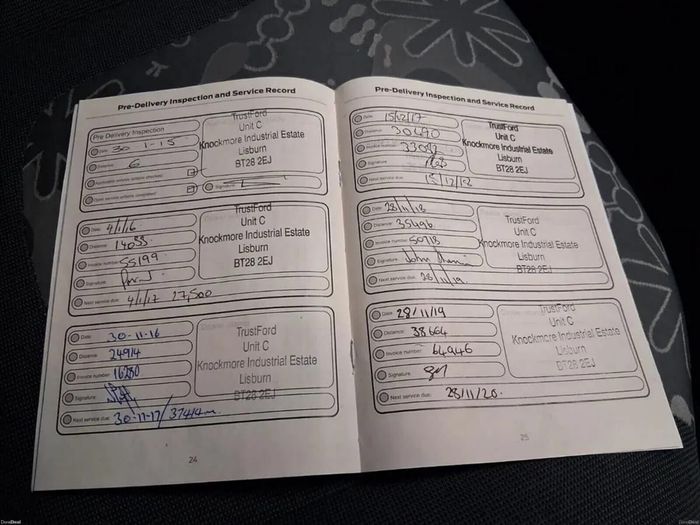 Pre-Delivery Inspection and Service Record
Pre Delivery Inspection
Date 30 1-15
Distance 6
Signature
TrustFord
Unit C
Knockmore Industrial Estate
Lisburn
BT28 2EJ
Date 4/1/16
Distance 14033
Invoice number 55199
Signature
Next service due 4/1/17 27,500
TrustFord
Unit C
Knockmore Industrial Estate
Lisburn
BT28 2EJ
Date 30-11-16
Distance 24914
Invoice number 16280
Signature
Next service due 30-11-17/ 37414m
TrustFord
Unit C
Knockmore Industrial Estate
Lisburn
BT28 2EJ
24
Pre-Delivery Inspection and Service Record
Date 15/12/17
Distance 30470
Invoice number
Signature
Next service due
TrustFord
Unit C
Knockmore Industrial Estate
Lisburn
BT28 2EJ
Date 28/11/18
Distance 35496
Invoice number 50718
Signature John
Next service due 28/11/19.
TrustFord
Unit C
Knockmore Industrial Estate
Lisburn
BT28 2EJ
Date 28/11/19
Distance 38664
Invoice number 64946
Signature
Next service due 28/11/20.
TrustFord
Unit C
Knockmore Industrial Estate
Lisburn
BT28 2EJ
25
DoneDeal